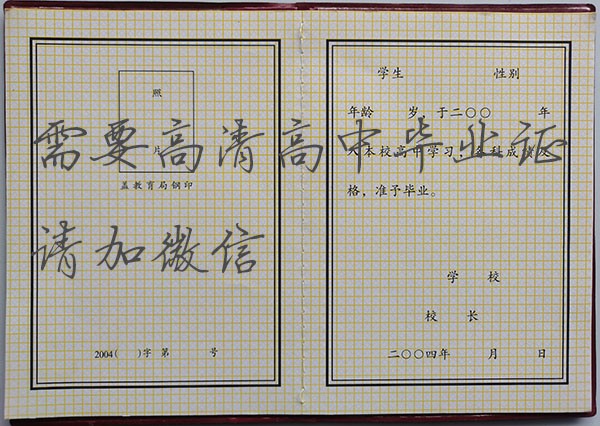 照
片
盖教育局钢印
2004( )字 第 号
学生 性别
年龄 岁，于二〇〇 年
入本校高中学习，各科成绩及
格，准予毕业。
学 校
校 长
二〇〇四年 月 日
需要高清高中毕业证
请加微信